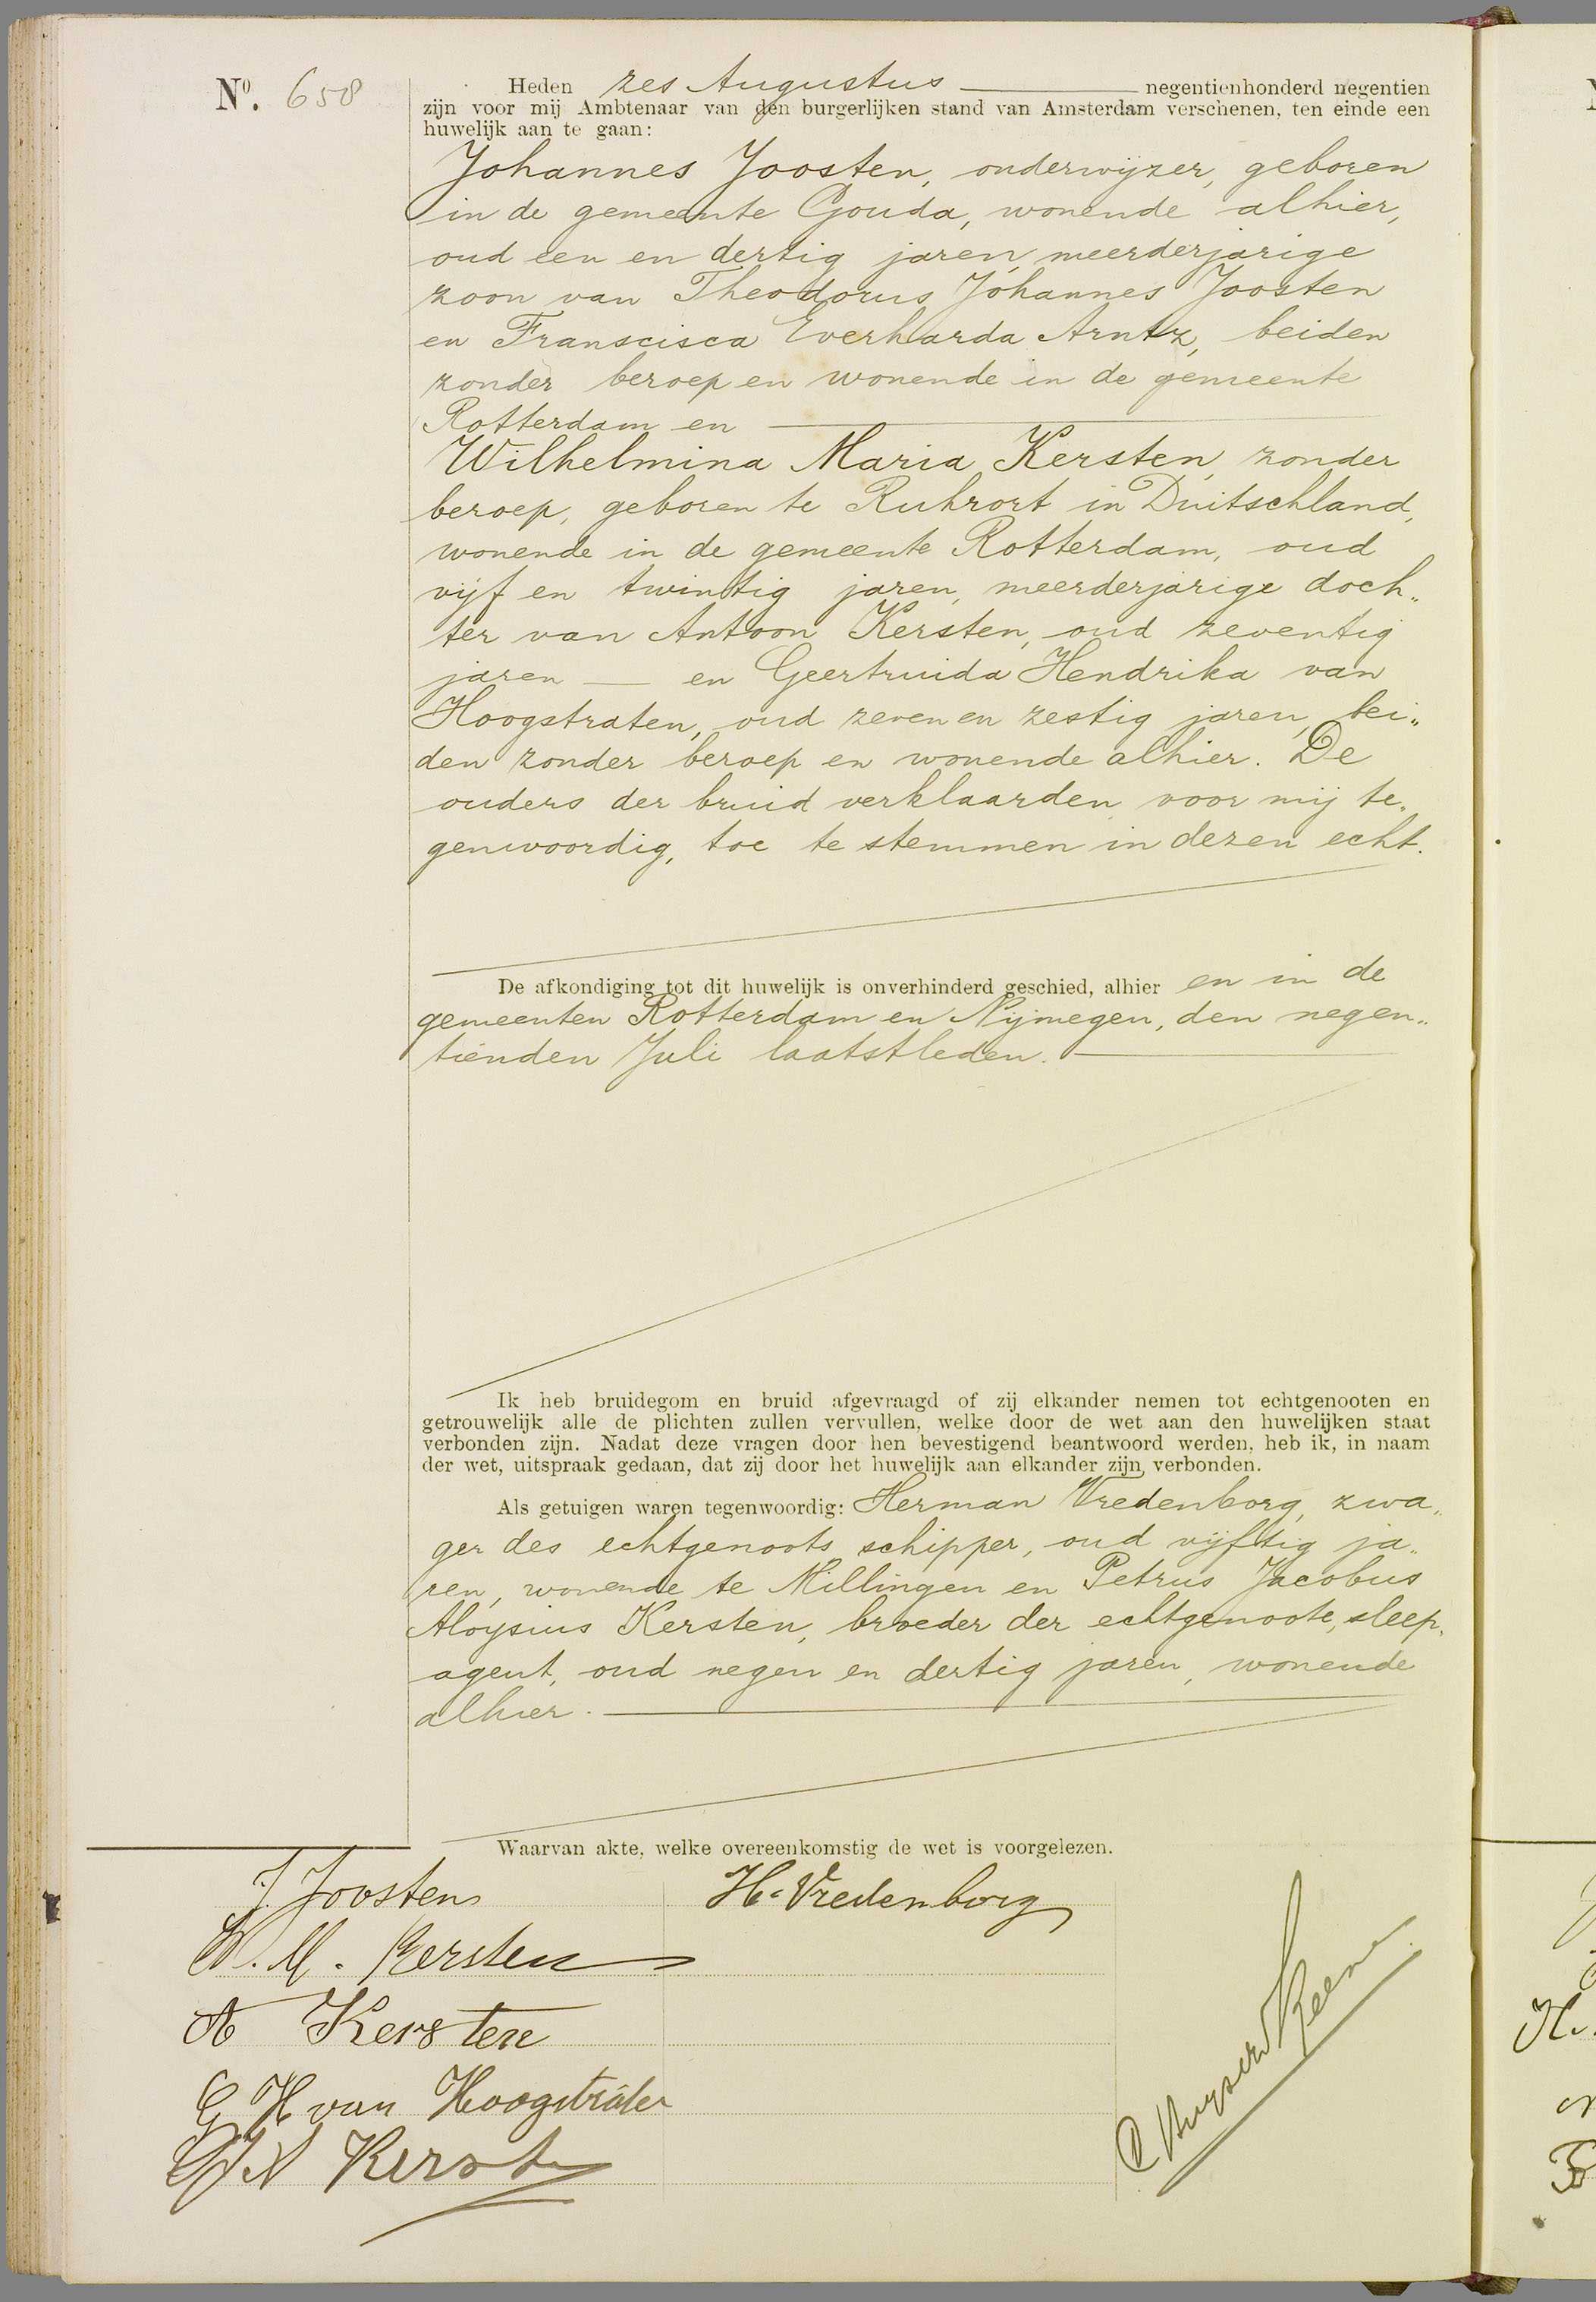 Nº. 658
Heden zes Augustus negentienhonderd negentien
zijn voor mij Ambtenaar van den burgerlijken stand van Amsterdam verschenen, ten einde een
huwelijk aan te gaan:
Johannes Joosten, onderwijzer, geboren
in de gemeente Gouda, wonende alhier,
oud een en dertig jaren, meerderjarige
zoon van Theodorus Johannes Joosten
en Franscisca Everharda Arntz, beiden
zonder beroep en wonende in de gemeente
Rotterdam en
Wilhelmina Maria Kersten, zonder
beroep, geboren te Ruhrort in Duitschland,
wonende in de gemeente Rotterdam, oud
vijf en twintig jaren, meerderjarige doch„
ter van Antoon Kersten, oud zeventig
jaren — en Geertruida Hendrika van
Hoogstraten, oud zeven en zestig jaren, bei„
den zonder beroep en wonende alhier. De
ouders der bruid verklaarden, voor mij te„
genwoordig, toe te stemmen in dezen echt.
De afkondiging tot dit huwelijk is onverhinderd geschied, alhier en in de
gemeenten Rotterdam en Nijmegen, den negen„
tienden Juli laatstleden.
Ik heb bruidegom en bruid afgevraagd of zij elkander nemen tot echtgenooten en
getrouwelijk alle de plichten zullen vervullen, welke door de wet aan den huwelijken staat
verbonden zijn. Nadat deze vragen door hen bevestigend beantwoord werden, heb ik, in naam
der wet, uitspraak gedaan, dat zij door het huwelijk aan elkander zijn verbonden.
Als getuigen waren tegenwoordig: Herman Vredenborg, zwa„
ger des echtgenoots schipper, oud vijftig ja„
ren, wonende te Millingen en Petrus Jacobus
Aloysius Kersten, broeder der echtgenoote, sleep„
agent, oud negen en dertig jaren, wonende
alhier.
Waarvan akte, welke overeenkomstig de wet is voorgelezen.
J. Joosten
H. Vredenborg
W. M. Kersten
A Kersten
G H van Hoogstraten
Kersten